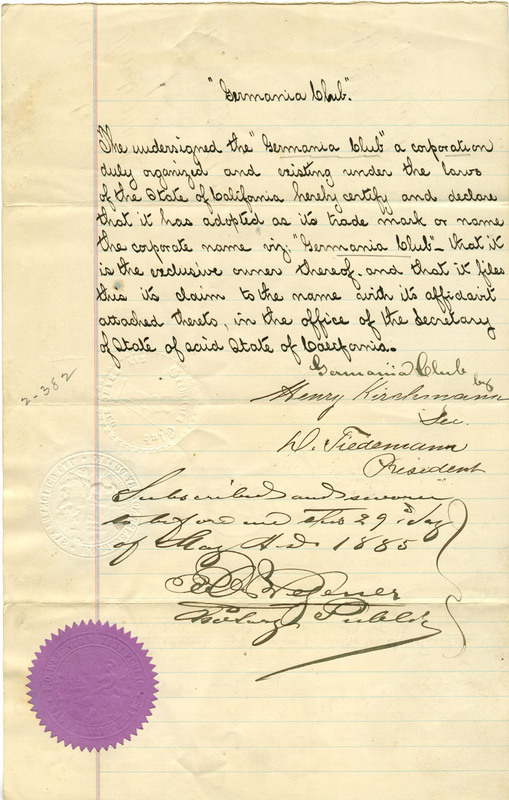 "Germania Club".
The undersigned the "Germania Club" a corporation
duly organized and existing under the laws
of the State of California hereby certify and declare
that it has adopted as its trade mark or name
the corporate name viz; "Germania Club" - that it
is the exclusive owner thereof - and that it files
this its claim to the name with its affidavit
attached thereto, in the office of the Secretary
of State of said State of California.
Germania Club
by
Henry Kirchmann
Sec.
D. Tiedemann
President
2-382
Subscribed and sworn
to before me this 29th day
of May A.D. 1885
Notary Public